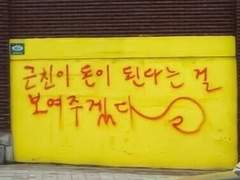 근친이 돈이 된다는 걸
보여주겠다